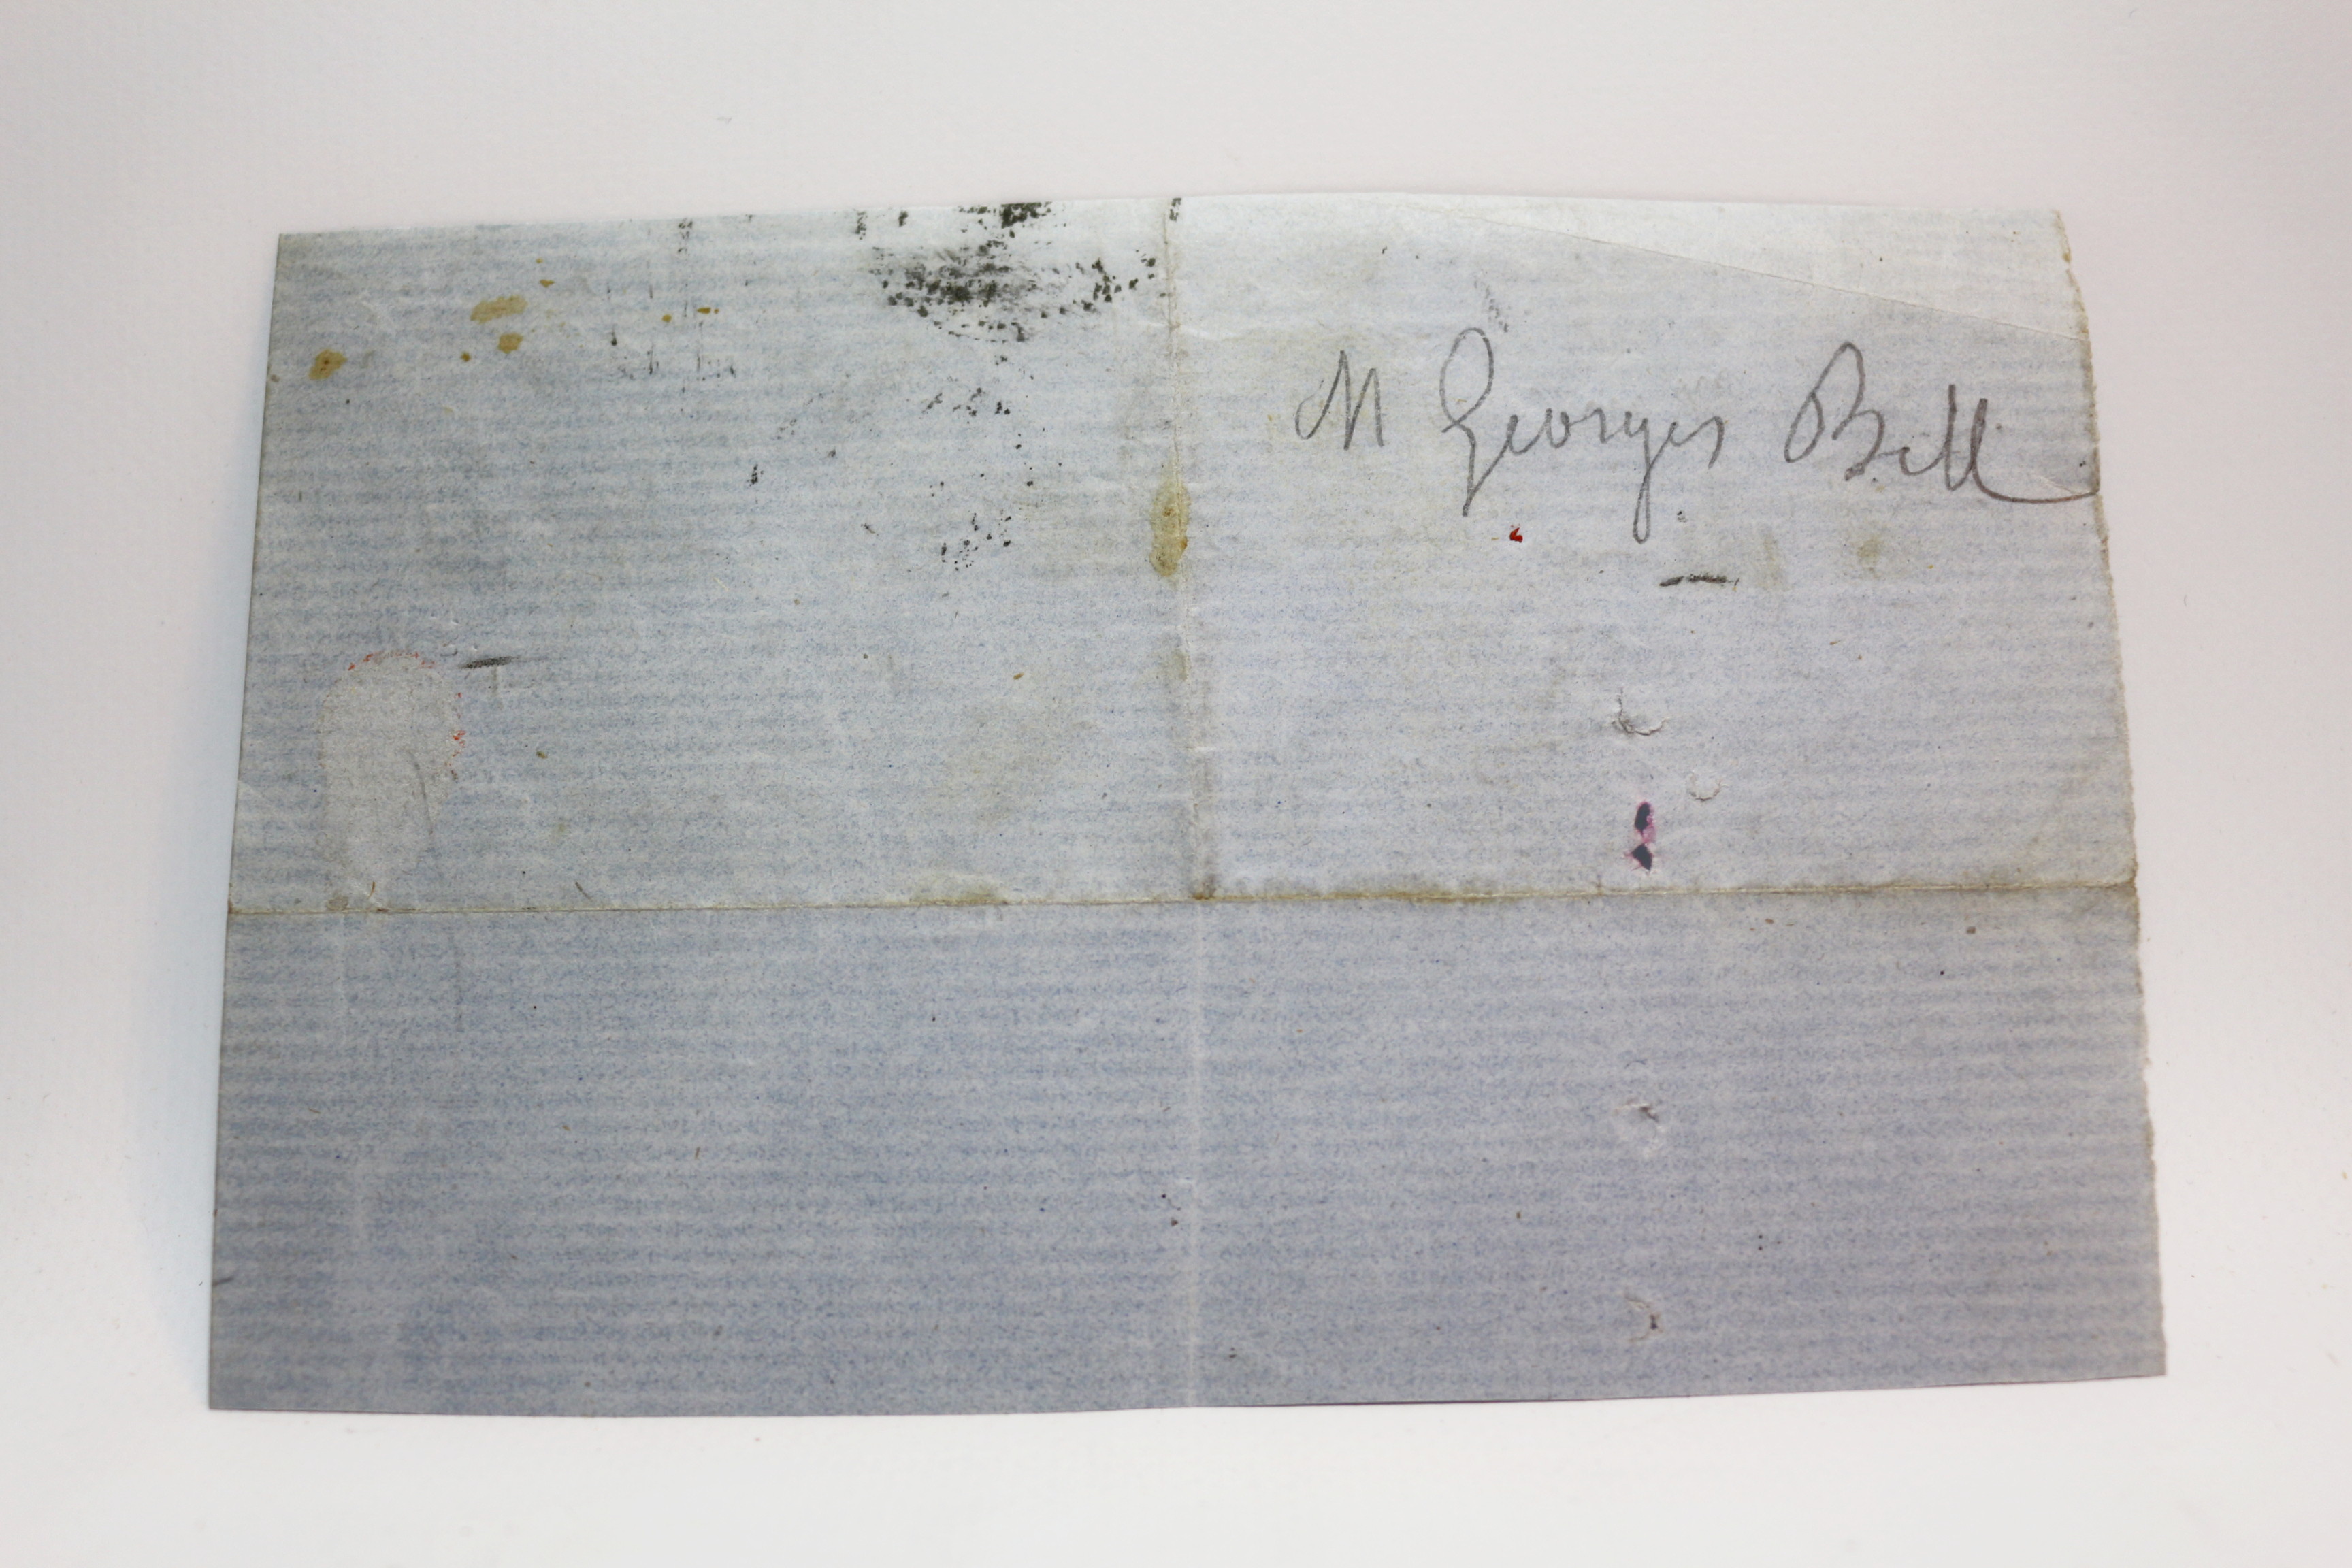 M Georges Bell